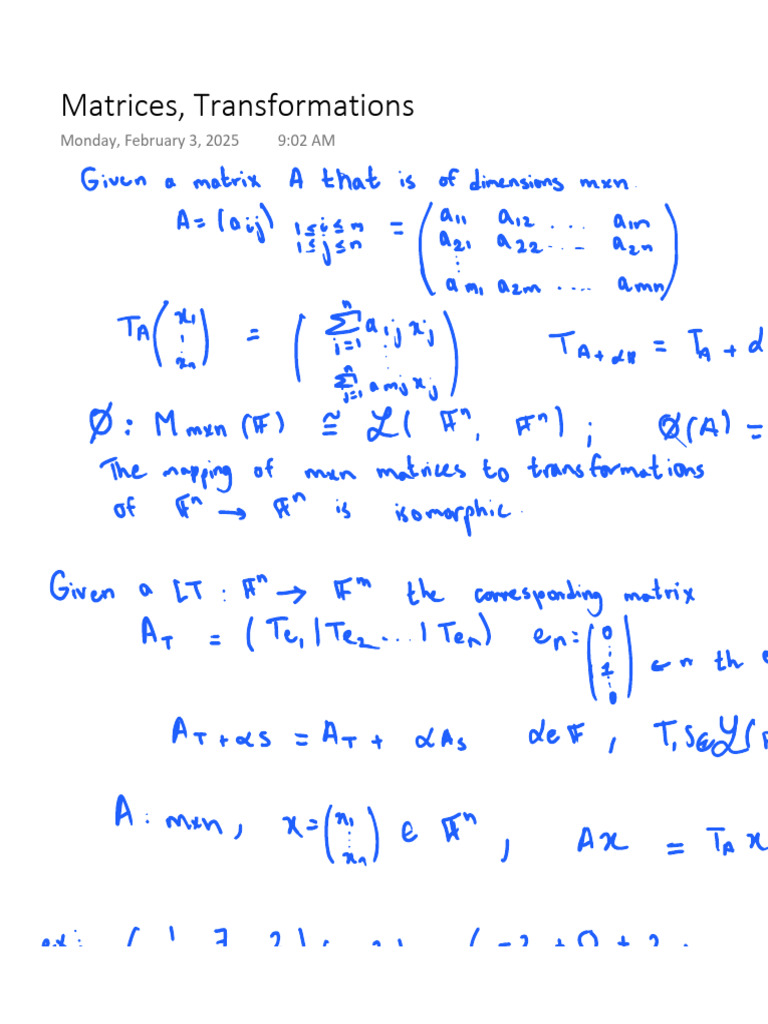 Matrices, Transformations
Monday, February 3, 2025 9:02 AM
Given a matrix A that is of dimensions mxn.
A = (aij) 1≤i≤m 1≤j≤n = ( a11 a12 ... a1n
a21 a22 ... a2n
⋮
am1 a2m .... amn )
TA (x1 ⋮ xn) = ( n∑j=1 a1j xj ⋮ n∑j=1 amj xj ) TA+αB = TA + α
Ø: Mmxn (F) ≅ L( Fn, Fn ) ; Ø(A) =
The mapping of mxn matrices to transformations
of Fn → Fn is isomorphic.
Given a LT : Fn → Fm the corresponding matrix
AT = (Te1 | Te2 ... | Ten) en = (0 ⋮ 1 ⋮ 0) ← n th
AT+αS = AT + αAS α∈F , T, S ∈ L(
A: mxn, x = (x1 ⋮ xn) ∈ Fn , Ax = TA x
ex: